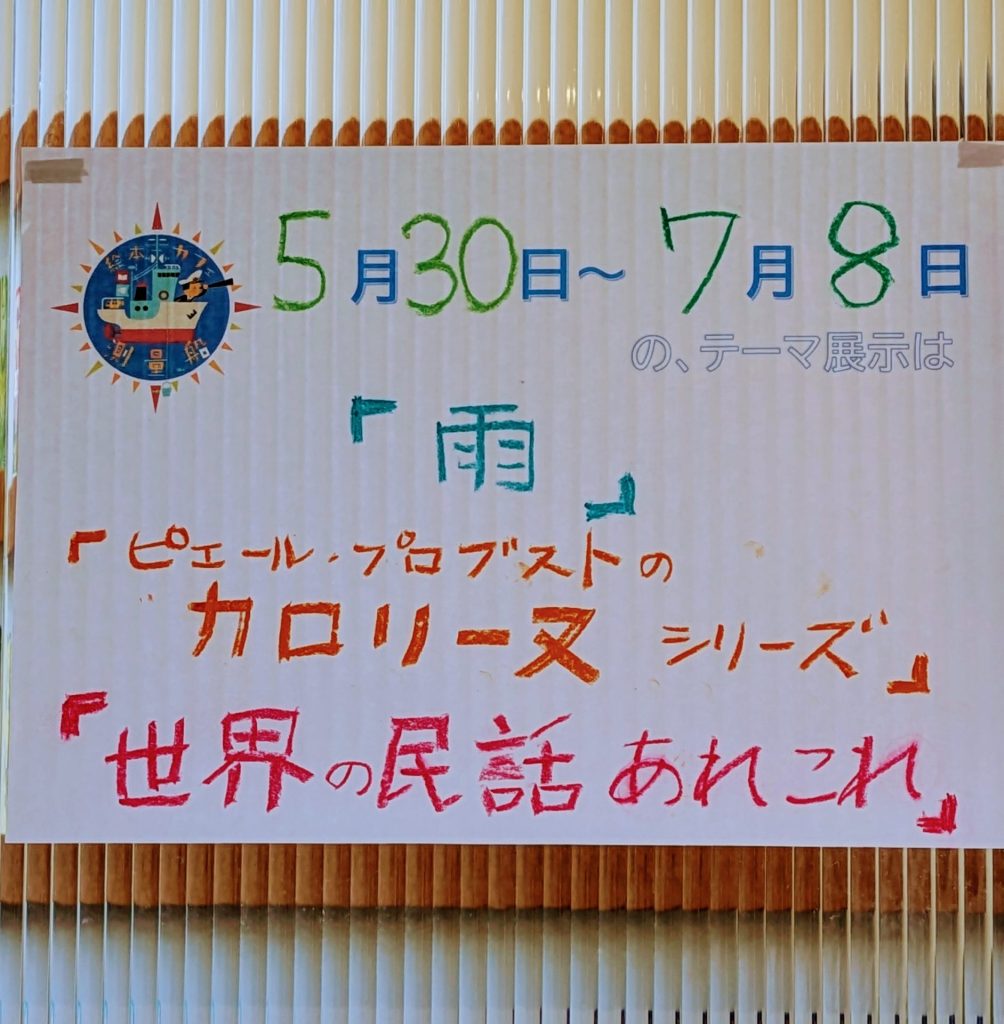 絵本とカフェ
測量船
5月30日～7月8日
の、テーマ展示は
『雨』
『ピエール・プロブストの
カロリーヌ シリーズ』
『世界の民話あれこれ』